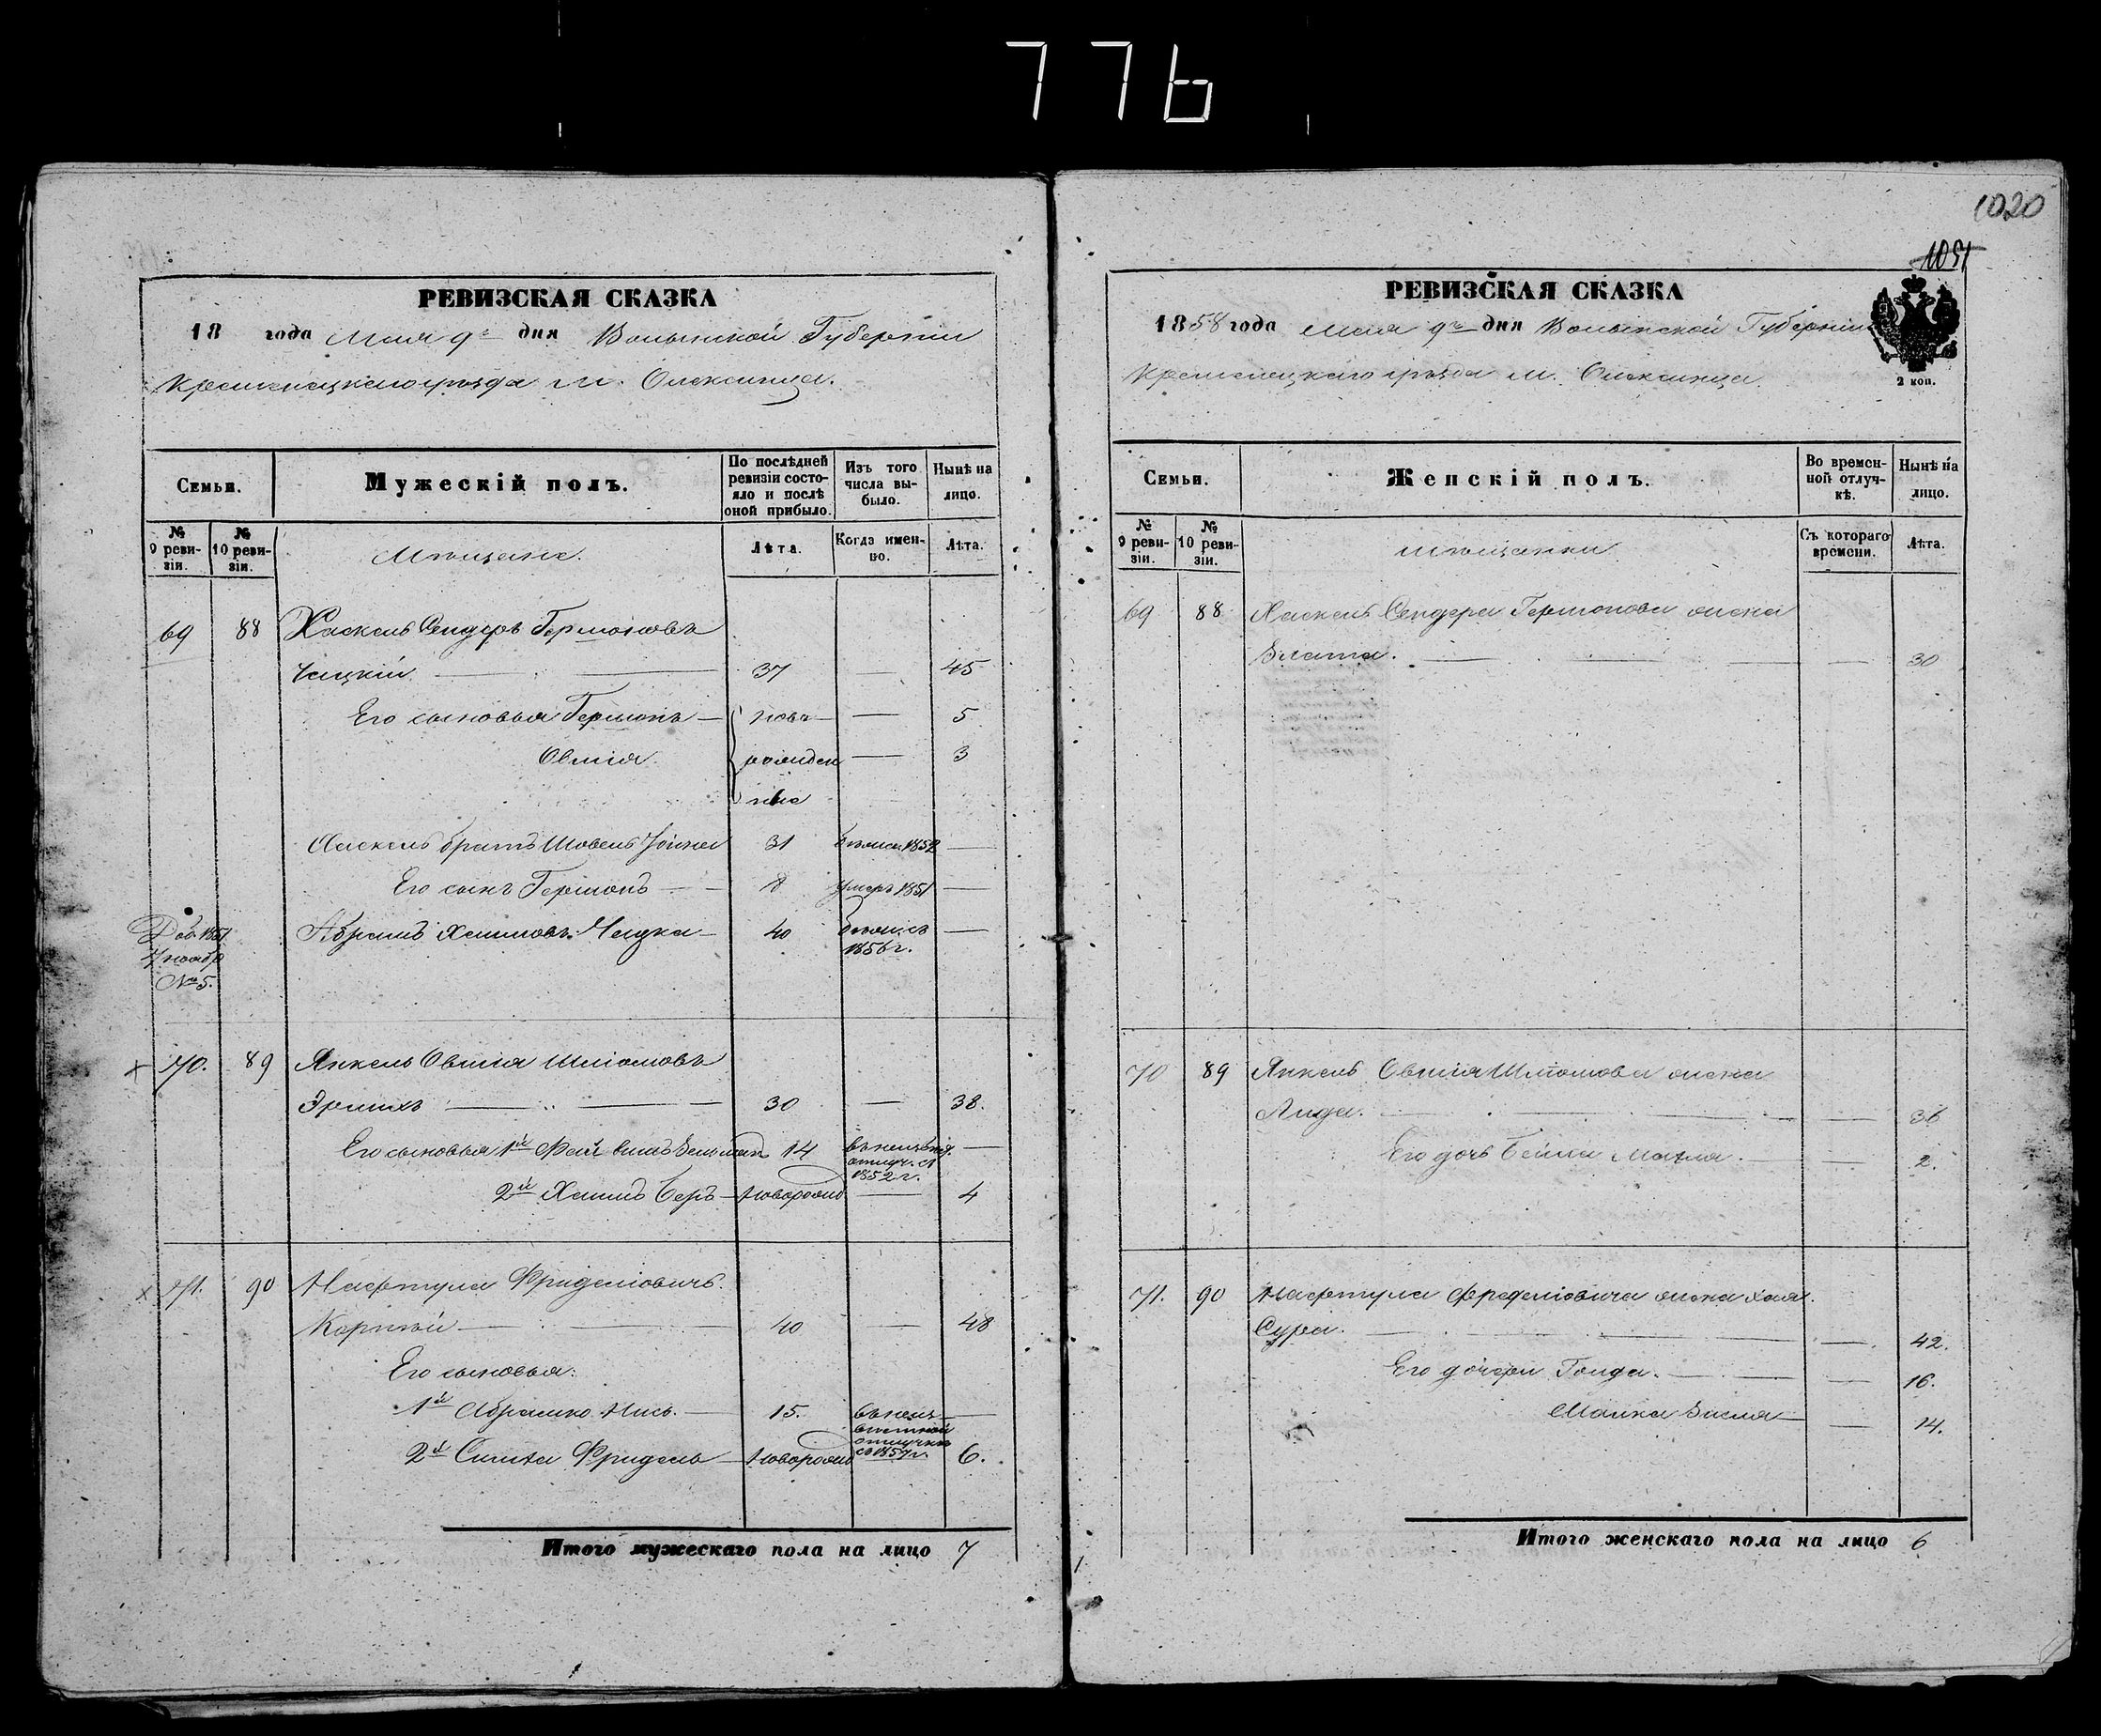 776
РЕВИЗСКАЯ СКАЗКА
18 года мая 9го дня Волынской Губернiи
Кременецкаго уѣзда м. Олексинца.
Семьи.
Мужескiй полъ.
По послѣдней ревизiи состояло и послѣ оной прибыло.
Изъ того числа выбыло.
Нынѣ на лицо.
№ 9 ревизiи.
№ 10 ревизiи.
Мѣщане.
Лѣта.
Когда именно.
Лѣта.
69 88 Хаскель Сендеръ Гершоновъ
Чацкiй 37 — 45
Его сыновья Гершонъ — ново — 5
Овшiя. рожден — 3
ные
Хаскеля братъ Шовель Іойна 31 бѣжал. 1852 —
Его сынъ Гершонъ — 8 умеръ 1851 —
Доб. 1851
7 ноябр
№ 5.
Абрамъ Хаимовъ Чацка — 40 бѣжалъ 1856 г. —
70. 89 Янкель Овшiя Шлiомовъ
Эрлихъ 30 — 38.
Его сыновья 1й Файвишъ Зельман 14 въ неизвѣст. отлуч. съ 1852 г. —
2й Хаимъ Беръ — новорожд — 4
71. 90 Нафтула Фриделiовичъ
Корнѣй 40 — 48
Его сыновья:
1й Абрамко Нись. — 15. въ неизвѣстной отлучкѣ съ 1857 г. —
2й Симха Фридель — новорожд 6.
Итого мужескаго пола на лицо 7
1020
1051
РЕВИЗСКАЯ СКАЗКА
1858 года мая 9го дня Волынской Губернiи
Кременецкаго уѣзда м. Олексинца
2 коп.
Семьи.
Женскiй полъ.
Во временной отлучкѣ.
Нынѣ на лицо.
№ 9 ревизiи.
№ 10 ревизiи.
мѣщанки
Съ котораго времени.
Лѣта.
69 88 Хаскель Сендера Гершонова жена
Злата. — 30
70 89 Янкель Овшiя Шлiомова жена
Лида. — 36
Его дочь Бейла Матля. — 2.
71. 90 Нафтула Фределiовича жена Хая
Сура. — 42.
Его дочери Голда. — 16.
Малка Басля — 14.
Итого женскаго пола на лицо 6